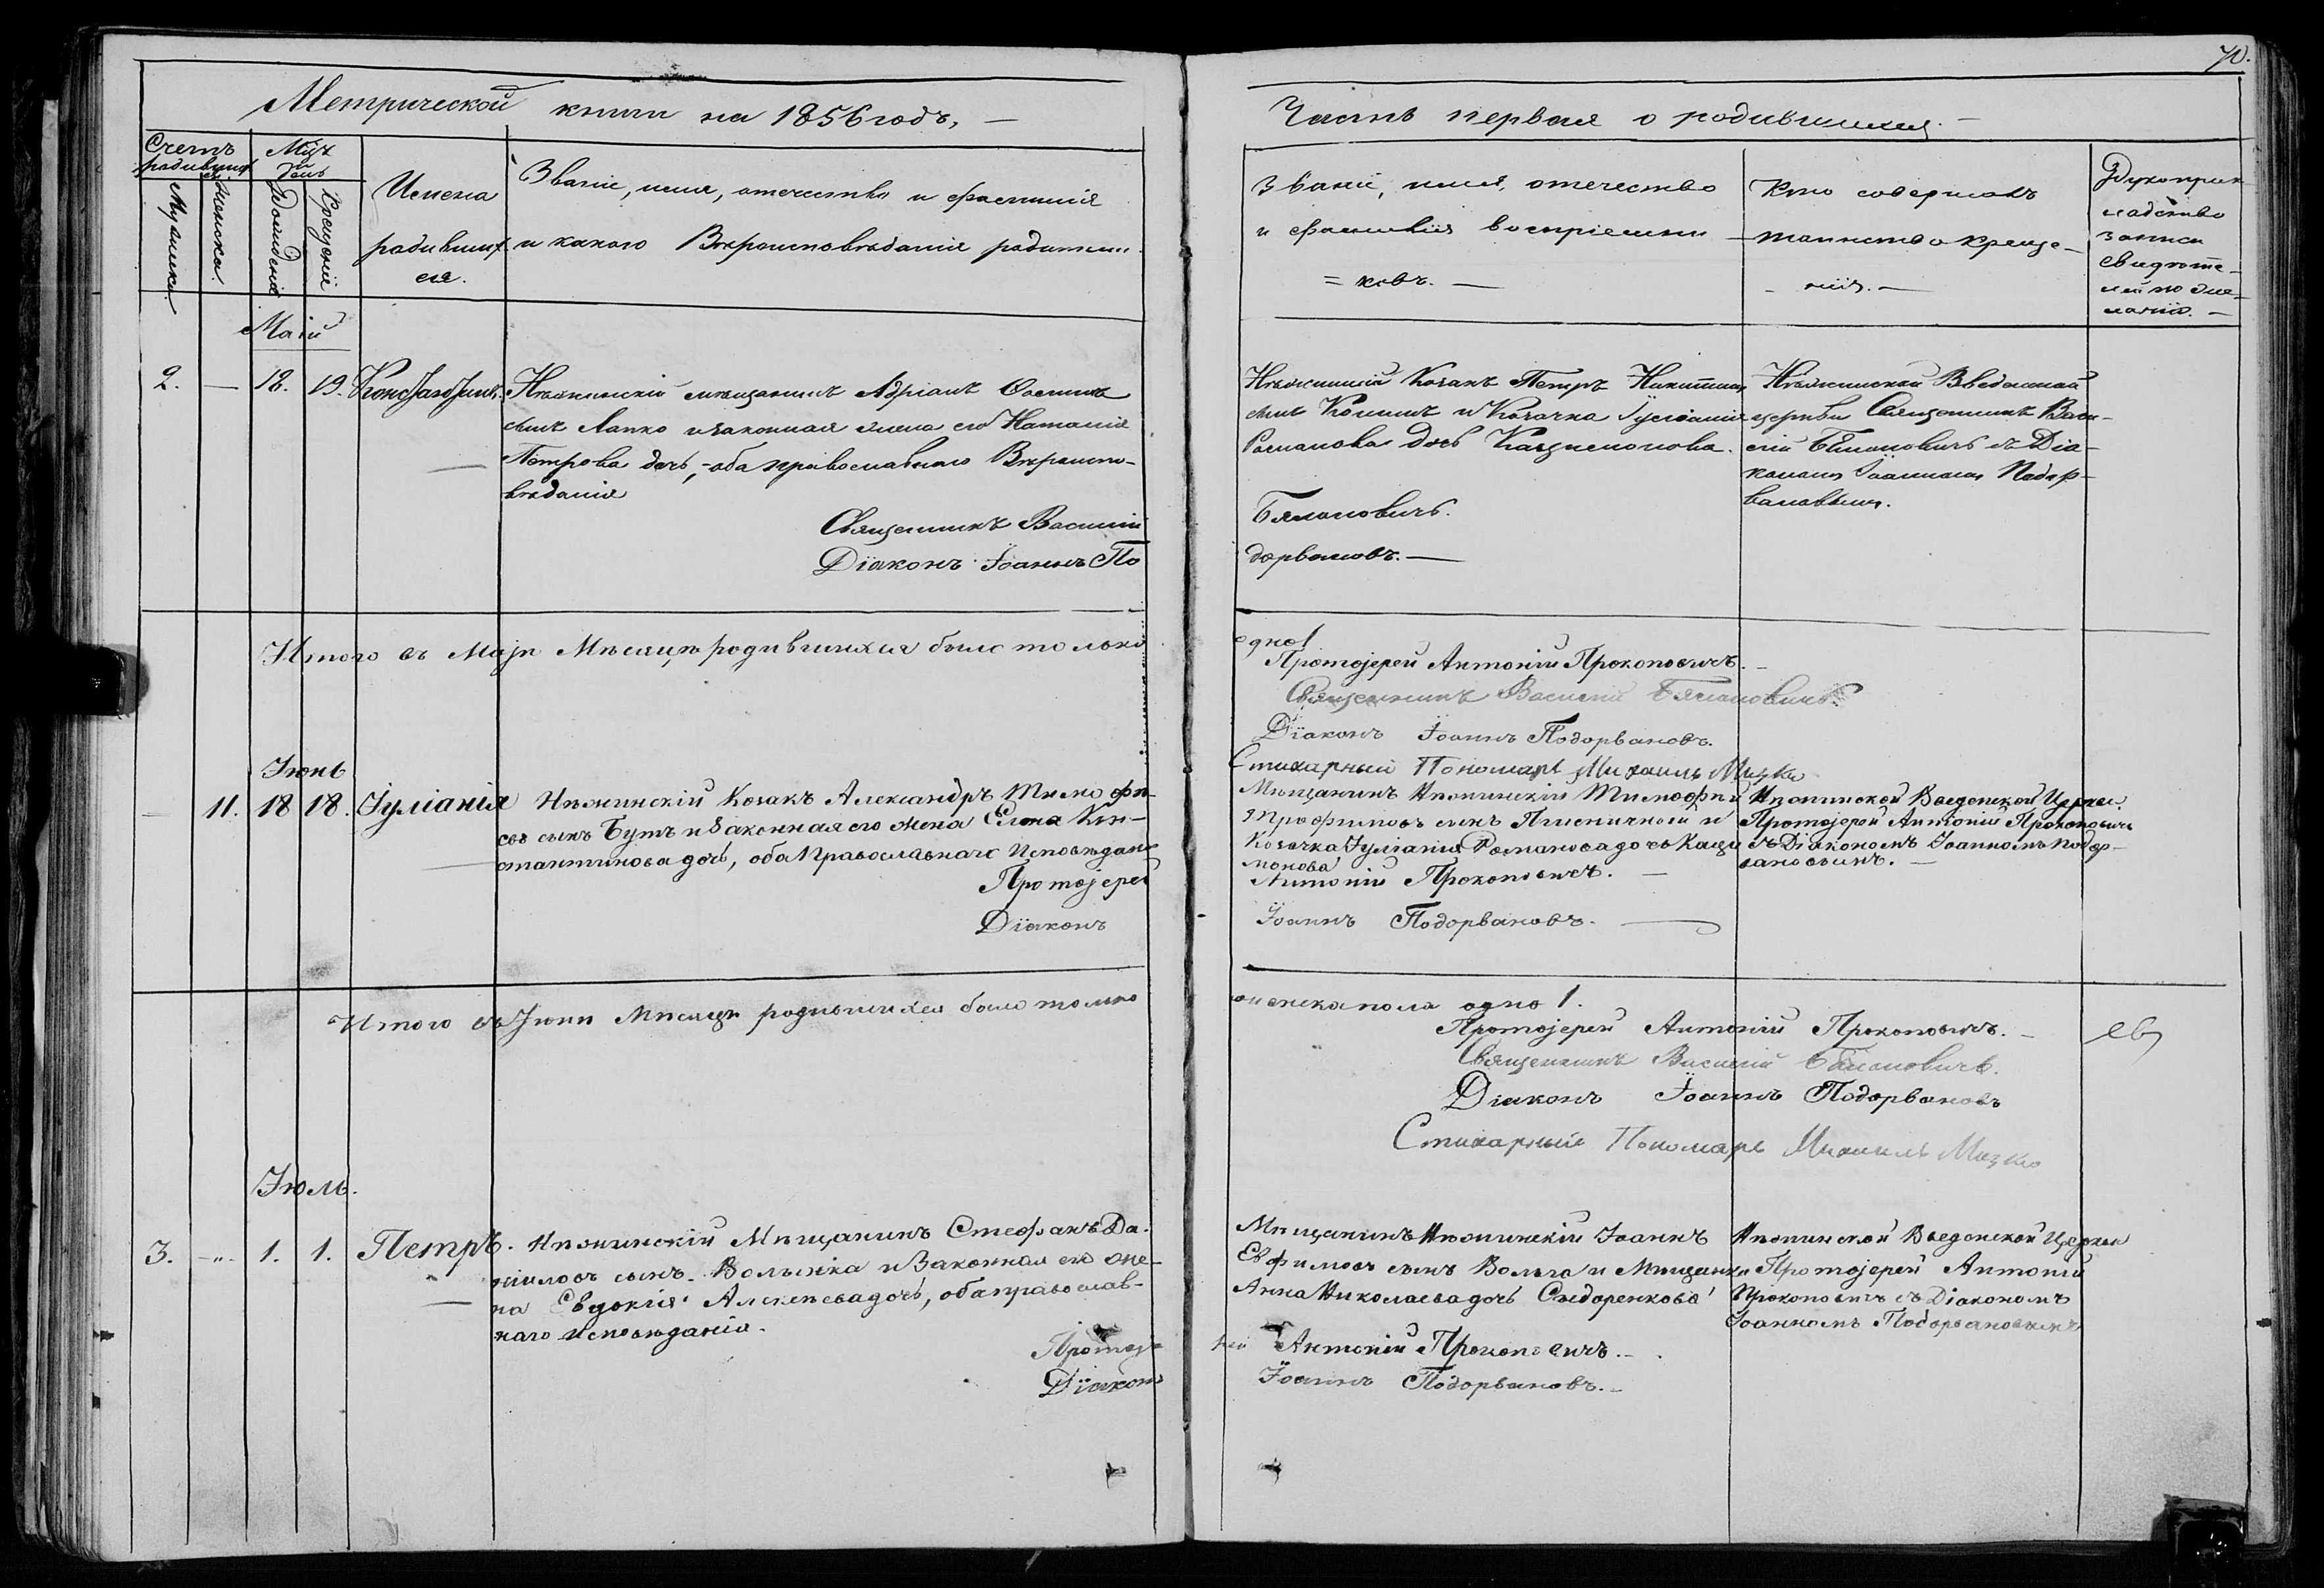 70.
Метрической книги на 1856 годъ, —
Часть первая о родившихся. —
Счетъ родивших
Мца и день
Мужеска.
Женска.
Рожденія
Крещенія
Имена
родивших
ся.
Званіе, имя, отечество и фамилія
и какого Вѣроисповѣданія родители.
Званіе, имя, отечество
и фамилія воспріемни
= ковъ. —
Кто совершалъ
таинство креще-
- нія. —
Рукопри
кладство
записи
свидѣте-
лей по же-
ланію. —
Маій
2. — 18. 19. Константинъ.
Нѣжинскій мѣщанинъ Адріанъ Осиповъ
сынъ Лапко и законная жена его Наталія
Петрова дочь, - оба православнаго Вѣроиспо-
вѣданія
Священникъ Василій
Діаконъ Іоаннъ По
Нѣжинскій Козакъ Петръ Никитинъ
сынъ и Козачка Іуліанія
Романова дочь Кацимонова.
Бялоновичъ.
дорвановъ. —
Нѣжинской Введенской
церкви Священникъ Васи-
лій Бялоновичъ съ Діа-
кономъ Іоанномъ Подор-
вановымъ.
Итого въ Маѣ Мѣсяцѣ родившихся было только
одно 1
Протоіерей Антоній Прокоповичъ. —
Священникъ Василій Бялоновичъ.
Діаконъ Іоаннъ Подорвановъ.
Стихарный Пономарь Михаилъ Мицко
Іюнь
— 11. 18 18. Іуліанія
Нѣжинскій Козакъ Александръ Тимофѣ-
евъ сынъ Бутъ и Законная его жена Елена Кон-
стантинова дочь, оба Православнаго Исповѣданія
Протоіерей
Діаконъ
Мѣщанинъ Нѣжинскій Тимофѣй
Трофимовъ сынъ Пшеничный и
Козачка Іуліанія Романова дочь Каци
монова
Антоній Прокоповичъ. —
Іоаннъ Подорвановъ. —
Нѣжинской Введенской Церкви
Протоіерей Антоній Прокоповичъ
съ Діакономъ Іоанномъ Подор-
вановымъ. —
Итого въ Іюнѣ Мѣсяцѣ родившихся было только
женска пола одно 1.
Протоіерей Антоній Прокоповичъ. —
Священникъ Василій Бялоновичъ.
Діаконъ Іоаннъ Подорвановъ
Стихарный Пономарь Михаилъ Мицко
Іюль.
3. -"- 1. 1. Петръ.
Нѣжинскій Мѣщанинъ Стефанъ Да-
ніиловъ сынъ Волынка и Законная его же-
на Евдокія Алексѣева дочь, оба православ-
наго исповѣданія.
Протоіе
Діаконъ
Мѣщанинъ Нѣжинскій Іоаннъ
Евфимовъ сынъ Волыга и Мѣщанка
Анна Николаева дочь Сидоренкова
рей Антоній Прокоповичъ. —
Іоаннъ Подорвановъ. —
Нѣжинской Введенской Церкви
Протоіерей Антоній
Прокоповичъ съ Діакономъ
Іоанномъ Подорвановымъ